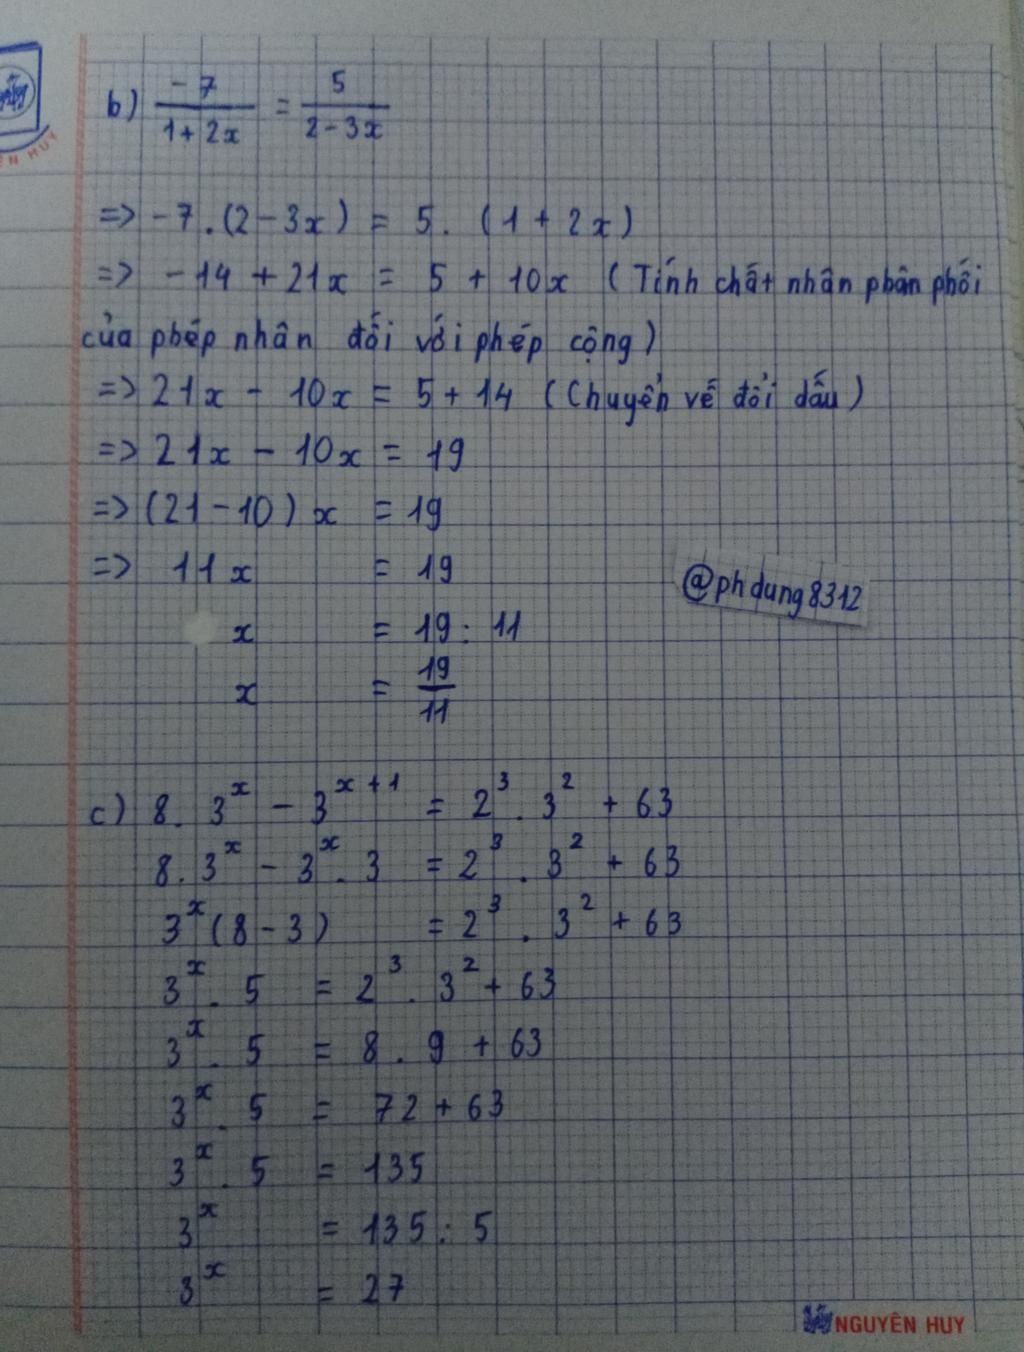 b) -7/(1+2x) = 5/(2-3x)
=> -7.(2-3x) = 5.(1+2x)
=> -14+21x = 5+10x (Tính chất nhân phân phối
của phép nhân đối với phép cộng)
=> 21x - 10x = 5+14 (Chuyển vế đổi dấu)
=> 21x - 10x = 19
=> (21-10)x = 19
=> 11x = 19
@phdung8312
x = 19 : 11
x = 19/11
c) 8.3^x - 3^(x+1) = 2^3.3^2 + 63
8.3^x - 3^x.3 = 2^3.3^2 + 63
3^x(8-3) = 2^3.3^2 + 63
3^x.5 = 2^3.3^2 + 63
3^x.5 = 8.9 + 63
3^x.5 = 72+63
3^x.5 = 135
3^x = 135:5
3^x = 27
NGUYÊN HUY